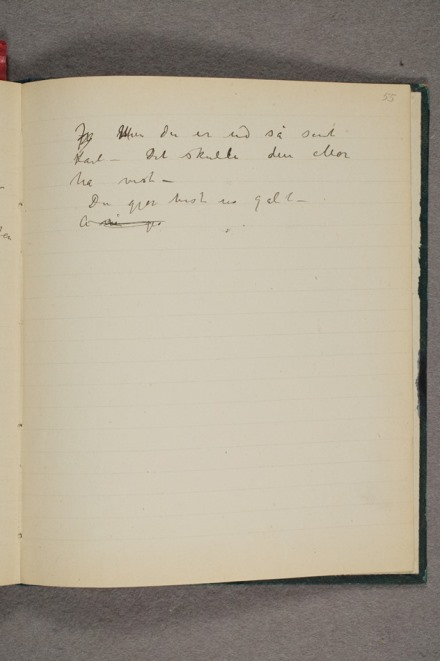 55
Men du er ud så sent
Karl – Det skulde din Mor
ha vist –
Du gjør vist no galt –